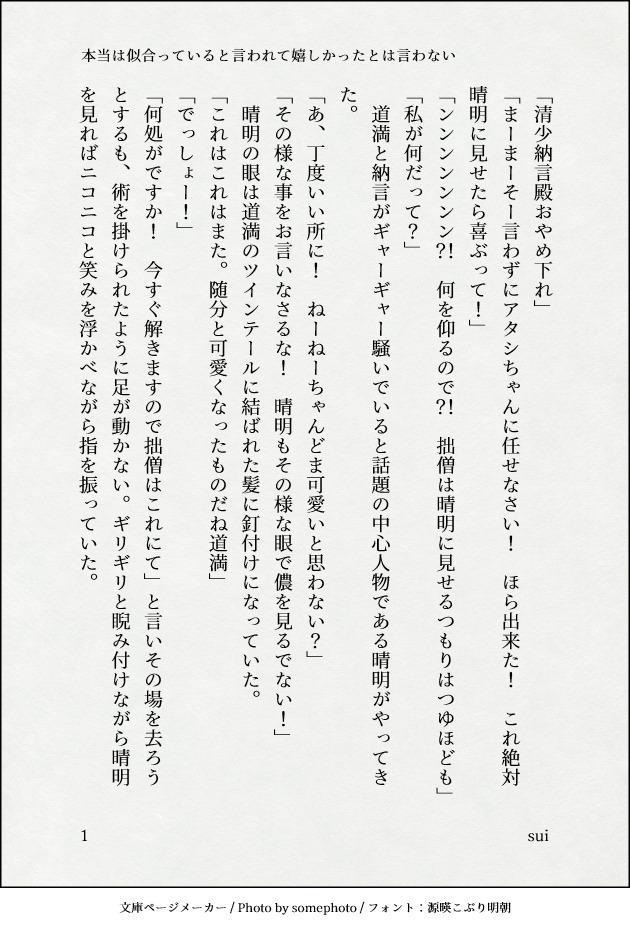 本当は似合っていると言われて嬉しかったとは言わない
「清少納言殿おやめ下れ」
「まーまーそー言わずにアタシちゃんに任せなさい！　ほら出来た！　これ絶対
晴明に見せたら喜ぶって！」
「ンンンンンンン?!　何を仰るので?!　拙僧は晴明に見せるつもりはつゆほども」
「私が何だって？」
　道満と納言がギャーギャー騒いでいると話題の中心人物である晴明がやってき
た。
「あ、丁度いい所に！　ねーねーちゃんどま可愛いと思わない？」
「その様な事をお言いなさるな！　晴明もその様な眼で儂を見るでない！」
　晴明の眼は道満のツインテールに結ばれた髪に釘付けになっていた。
「これはこれはまた。随分と可愛くなったものだね道満」
「でっしょー！」
「何処がですか！　今すぐ解きますので拙僧はこれにて」と言いその場を去ろう
とするも、術を掛けられたように足が動かない。ギリギリと睨み付けながら晴明
を見ればニコニコと笑みを浮かべながら指を振っていた。
sui
1
文庫ページメーカー / Photo by somephoto / フォント：源暎こぶり明朝